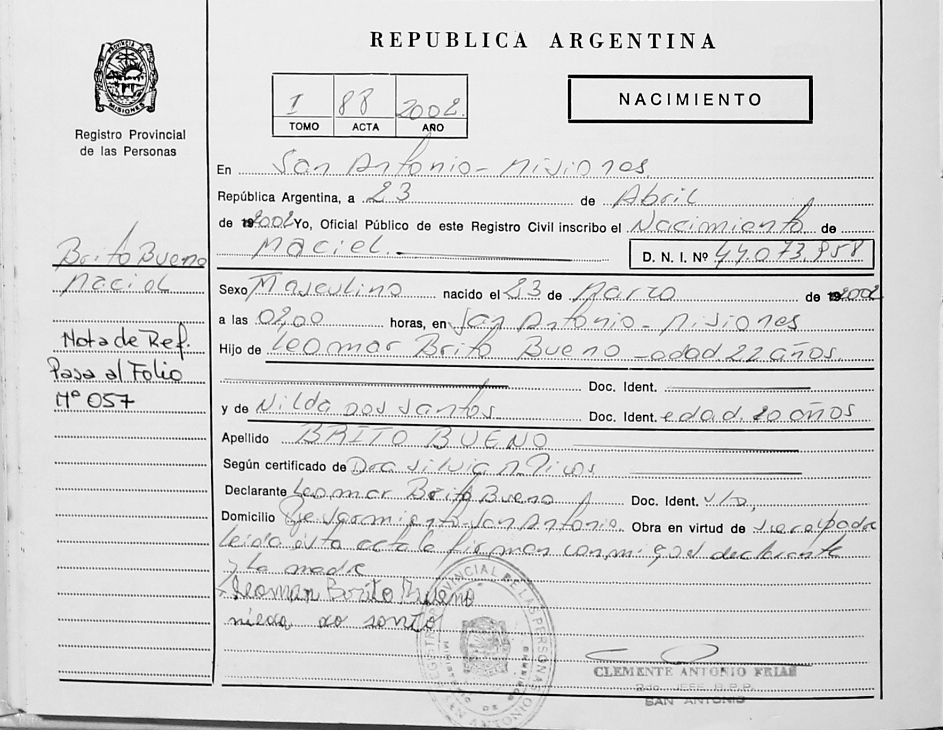 REPUBLICA ARGENTINA
PROVINCIA DE MISIONES
Registro Provincial
de las Personas
I 88 2002
TOMO ACTA AÑO
NACIMIENTO
En San Antonio - Misiones
República Argentina, a 23 de Abril
de 2002 Yo, Oficial Público de este Registro Civil inscribo el Nacimiento de
Maciel. D. N. I. Nº 44.073.958
Brito Bueno
Maciel
Nota de Ref.
Pasa al Folio
Nº 057
Sexo Masculino nacido el 23 de Marzo de 2002
a las 02,00 horas, en San Antonio - Misiones
Hijo de Leomar Brito Bueno - edad 22 años
Doc. Ident.
y de Nilda dos Santos Doc. Ident. edad. 20 años
Apellido BRITO BUENO
Según certificado de Dra Silvia
Declarante Leomar Brito Bueno Doc. Ident.
Domicilio San Antonio Obra en virtud de
leida esta acta la firman conmigo el declarante
y la madre
Leomar Brito Bueno
CLEMENTE ANTONIO FRIAS
SAN ANTONIO